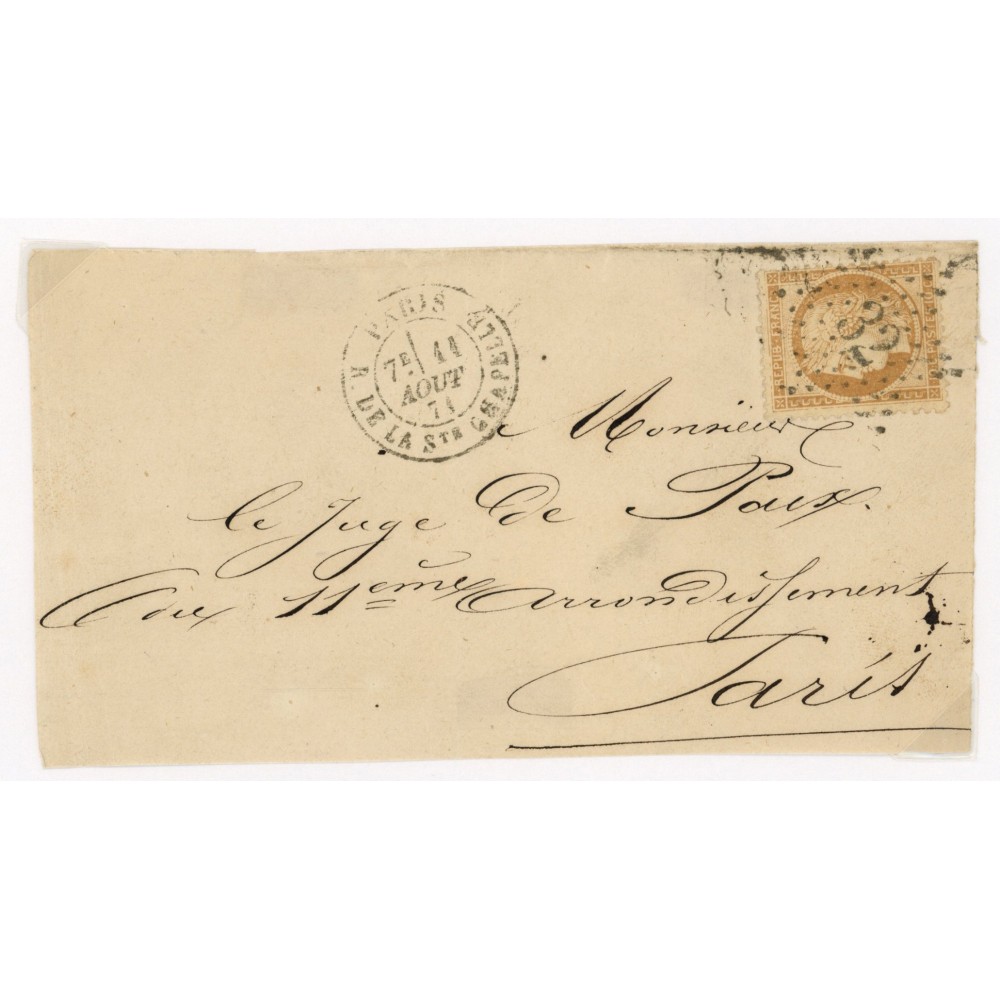 PARIS
R. DE LA STE CHAPELLE
7E 11
AOUT
71
REPUB. FRANC.
32
a Monsieur
le Juge de Paix.
du 11ème arrondissement
Paris